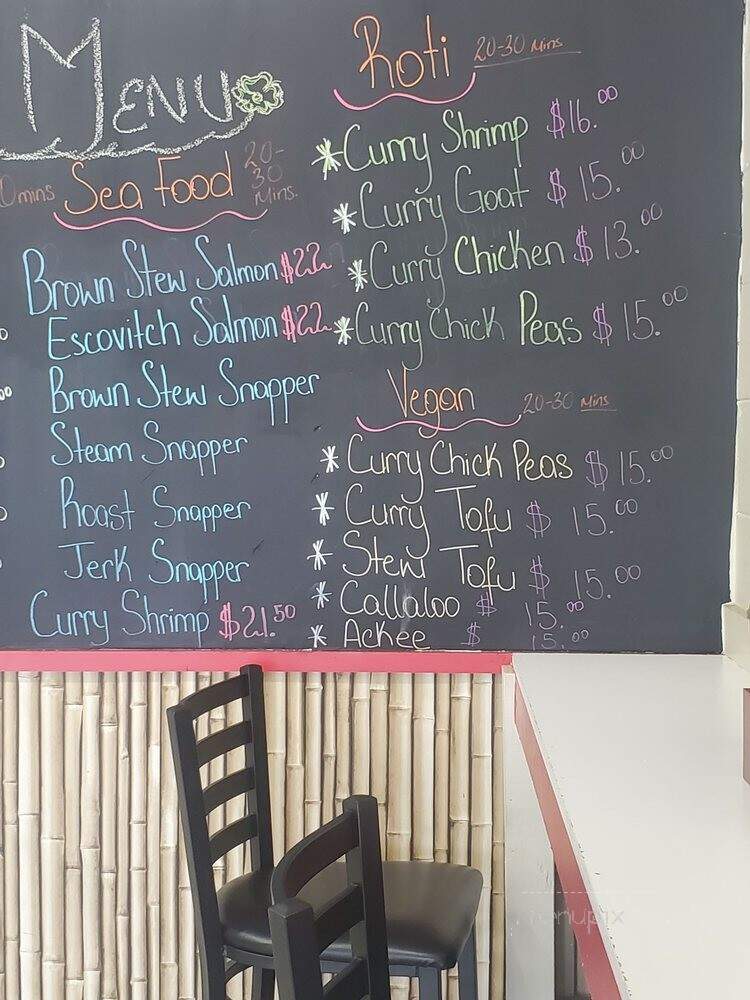 Menu
mins
Sea Food 20-30 Mins.
Brown Stew Salmon $22
Escovitch Salmon $22
Brown Stew Snapper
Steam Snapper
Roast Snapper
Jerk Snapper
Curry Shrimp $21.50
Roti 20-30 Mins
*Curry Shrimp $16.00
*Curry Goat $15.00
*Curry Chicken $13.00
*Curry Chick Peas $15.00
Vegan 20-30 Mins
*Curry Chick Peas $15.00
*Curry Tofu $15.00
*Stew Tofu $15.00
*Callaloo $15.00
*Ackee $15.00